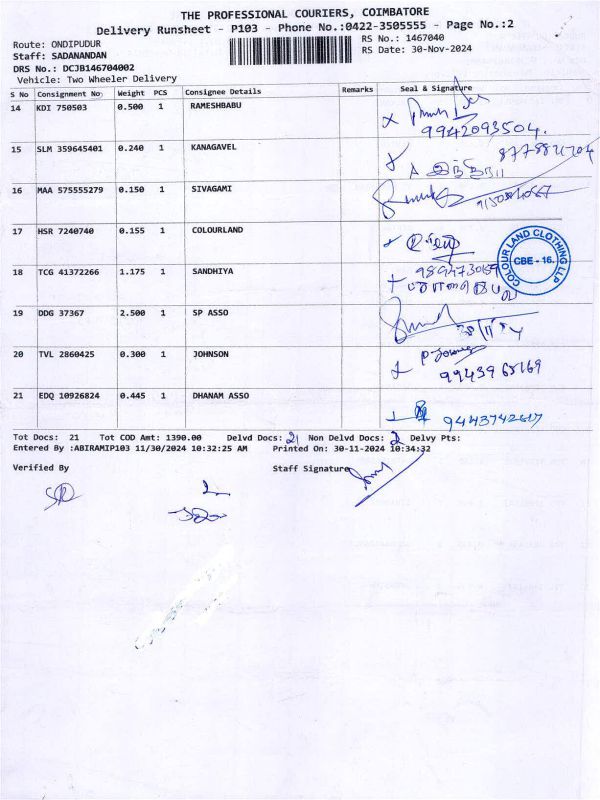 THE PROFESSIONAL COURIERS, COIMBATORE
Delivery Runsheet - P103 - Phone No.:0422-3505555 - Page No.:2
Route: ONDIPUDUR
RS No.: 1467040
Staff: SADANANDAN
RS Date: 30-Nov-2024
DRS No.: DCJB146704002
Vehicle: Two Wheeler Delivery
S No Consignment No Weight PCS Consignee Details Remarks Seal & Signature
14 KDI 750503 0.500 1 RAMESHBABU
9942093504.
15 SLM 359645401 0.240 1 KANAGAVEL
16 MAA 575555279 0.150 1 SIVAGAMI
17 HSR 7240740 0.155 1 COLOURLAND
COLOUR LAND CLOTHING LLP
CBE - 16.
18 TCG 41372266 1.175 1 SANDHIYA
19 DDG 37367 2.500 1 SP ASSO
20 TVL 2860425 0.300 1 JOHNSON
21 EDQ 10926824 0.445 1 DHANAM ASSO
Tot Docs: 21 Tot COD Amt: 1390.00 Delvd Docs: 21 Non Delvd Docs: Delvy Pts:
Entered By :ABIRAMIP103 11/30/2024 10:32:25 AM Printed On: 30-11-2024 10:34:32
Verified By Staff Signature